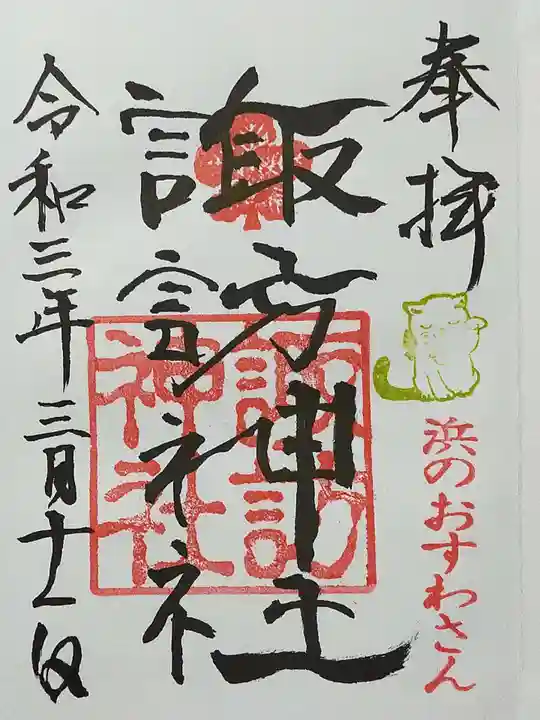 奉拝
浜のおすわさん
諏訪神社
諏訪
神社
令和三年三月十一日